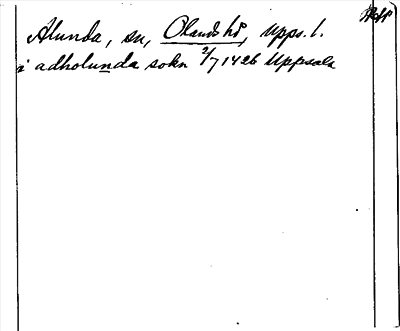 Alunda, sn, Olands hd, Upps. l.
i adholunda sokn 2/7 1426 Uppsala